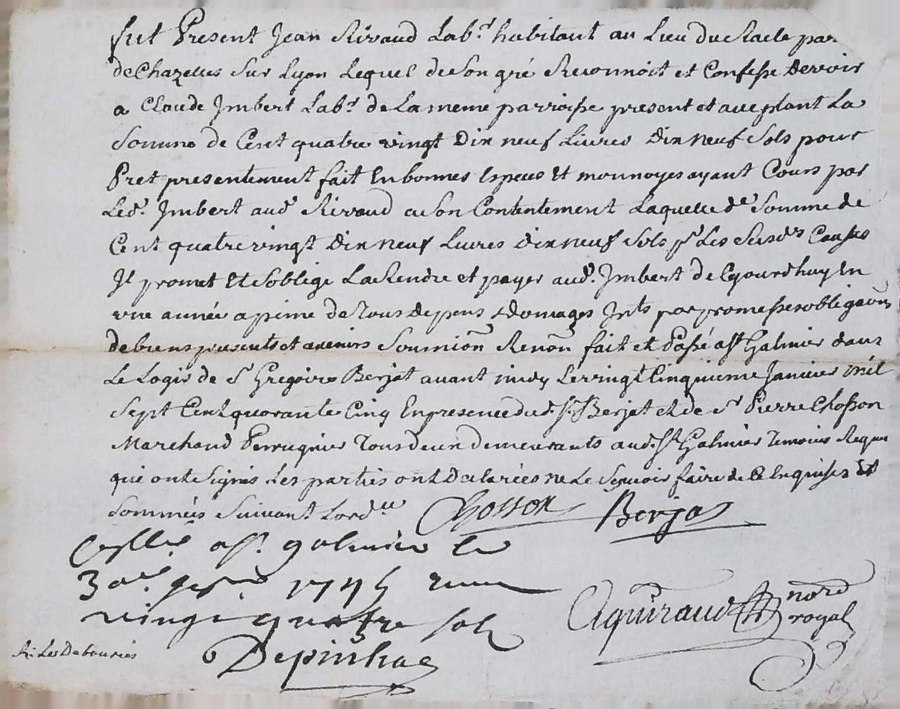 fut Present Jean Rivaud Labr. habitant au Lieu du
de Chazelles sur Lyon Lequel de son gré Reconnoit et Confesse devoir
a Claude Imbert Labr. de la meme parroisse present et aceptant La
Somme de Cent quatre vingt Dix neuf Livres Dix neuf Sols pour
Pret presentement fait En bonnes Especes Et monnoyes ayant Cours par
Led. Imbert aud. Rivaud a son Contentement Laquelle de. Somme de
Cent quatre vingt Dix neuf Livres dix neuf Sols pr. Les Susds. Causes
Il promet Et soblige La Rendre et payer aud. Imbert de Cejourdhuy En
une année a pime de Tous depens & domages Jnts. par promesse obligaon
de biens presents et avenirs Soumion Renon fait et Passé a St. Galmier dans
Le Logis de Sr. Gregoire Berjat avant midy Le vingt Cinquieme Janvier mil
Sept Cent quarante Cinq En presence dud. Sr. Berjat et de Sr. Pierre Chosson
Marchand Perruquier Tous deux demeurants aud. St. Galmier Temoins Requis
qui ont signés Les parties ont Declarées ne Le Sçavoir faire de Ce Enquises Et
Sommées Suivant Lordce
Chosson Berjat
Collé a St. galmier le
30e. 1745
vingt quatre sols
Aguiraud nore royal
Depinhac